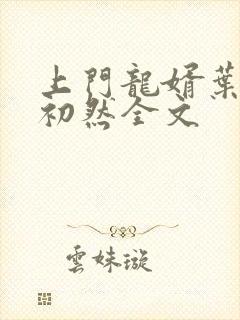 上門龍婿葉
初然全文
雲妹璇